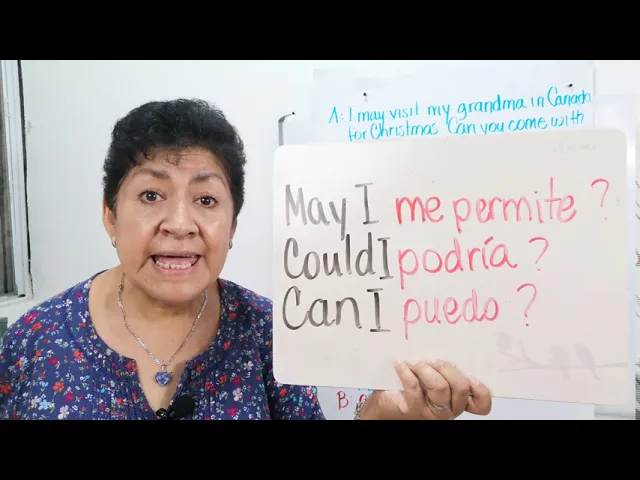 A: I may visit my grandma in Canada
for Christmas Can you come with
May I me permite ?
Could I podría ?
Can I puedo ?
B: